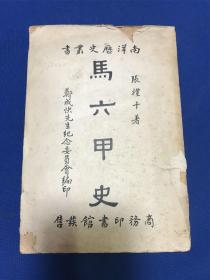 書叢史歷洋南
張禮千著
馬六甲史
鄭成快先生紀念委員會編印
售發館書印務商